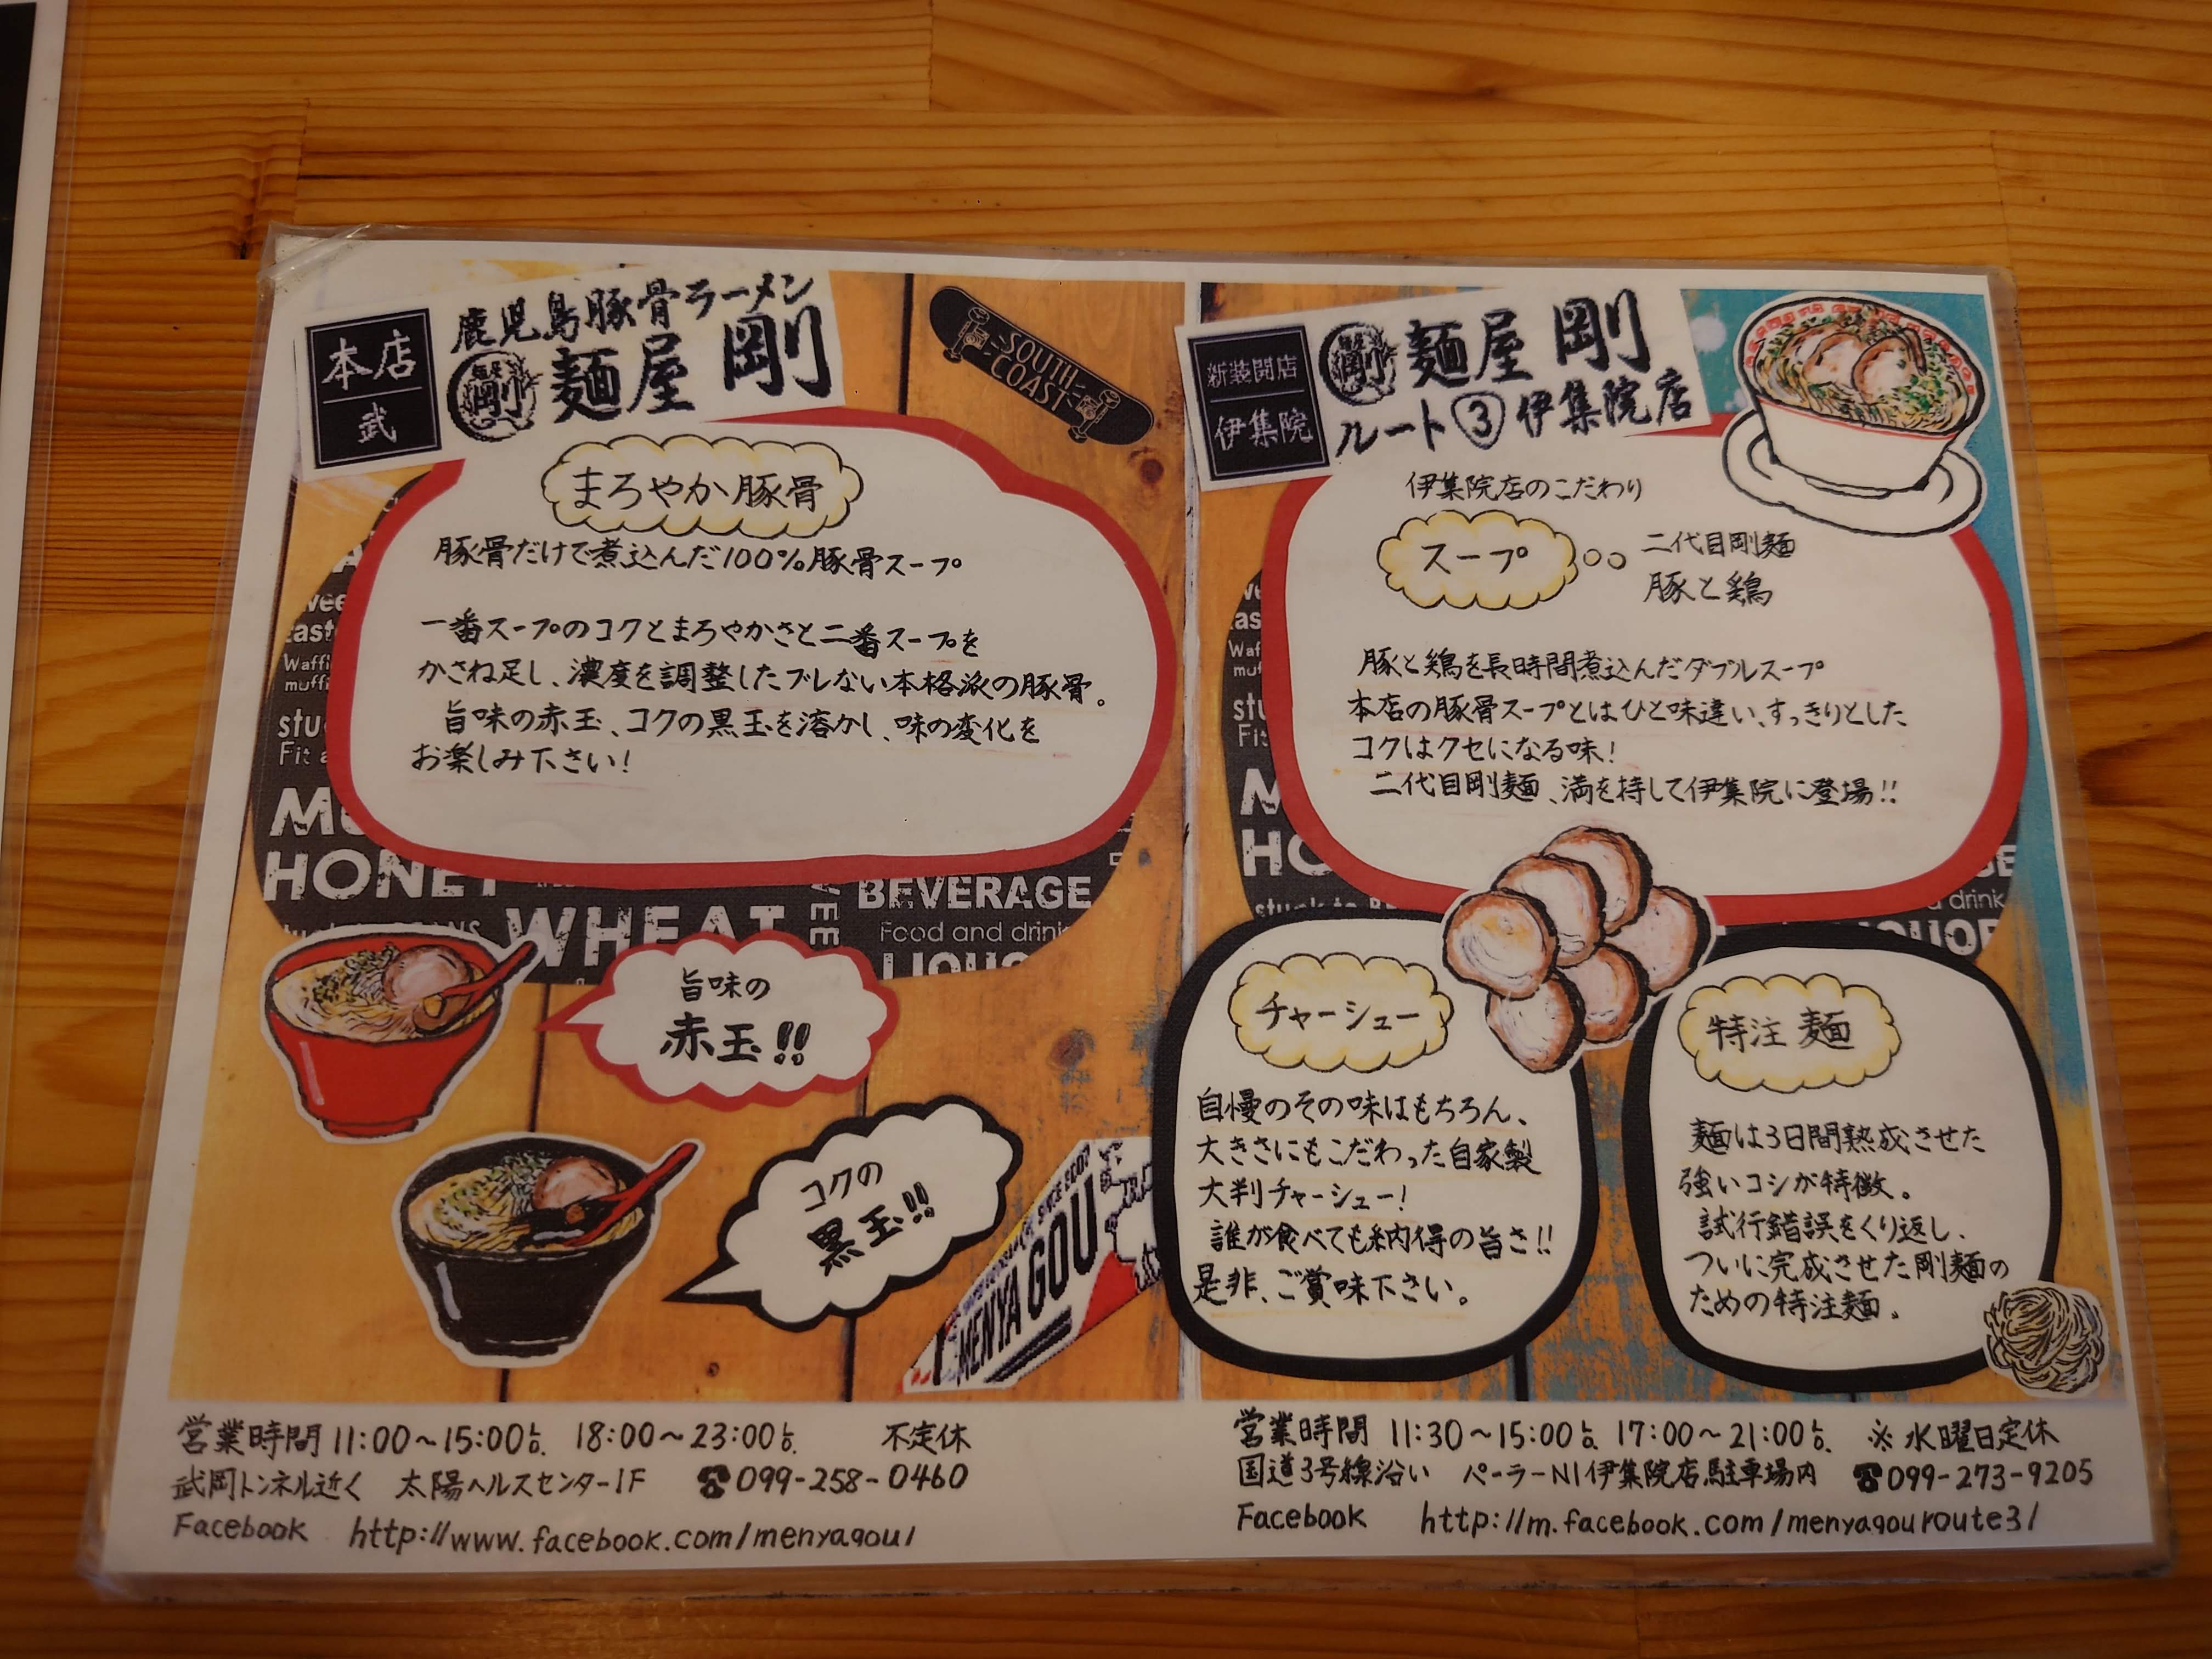 本店
武
鹿児島豚骨ラーメン
剛 麺屋 剛
SOUTH
COAST
まろやか豚骨
豚骨だけで煮込んだ100%豚骨スープ
一番スープのコクとまろやかさと二番スープを
かさね足し、濃度を調整したブレない本格派の豚骨。
旨味の赤玉、コクの黒玉を溶かし、味の変化を
お楽しみ下さい!
HONEY
WHEAT
BEVERAGE
Food and drink
旨味の
赤玉!!
コクの
黒玉!!
MENYA GOU
営業時間 11:00~15:00LO. 18:00~23:00LO. 不定休
武岡トンネル近く 太陽ヘルスセンター1F ☎099-258-0460
Facebook http://www.facebook.com/menyagou/
新装開店
伊集院
剛 麺屋 剛
ルート③伊集院店
伊集院店のこだわり
スープ
二代目剛麺
豚と鶏
豚と鶏を長時間煮込んだダブルスープ
本店の豚骨スープとはひと味違い、すっきりとした
コクはクセになる味!
二代目剛麺、満を持して伊集院に登場!!
チャーシュー
自慢のその味はもちろん、
大きさにもこだわった自家製
大判チャーシュー!
誰が食べても納得の旨さ!!
是非、ご賞味下さい。
特注 麺
麺は3日間熟成させた
強いコシが特徴。
試行錯誤をくり返し、
ついに完成させた剛麺の
ための特注麺。
営業時間 11:30~15:00LO. 17:00~21:00LO. ※水曜日定休
国道3号線沿い パーラーN1伊集院店駐車場内 ☎099-273-9205
Facebook http://m.facebook.com/menyagouroute3/